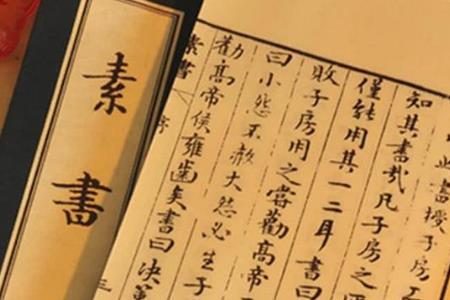 此書授子房
知其書哉凡子房之
僅能用其一二耳書曰
敗子房用之嘗勸高帝
曰小怨不赦大怨必生子
勸高帝侯雍齒矣書曰決
素書 序 三
素書